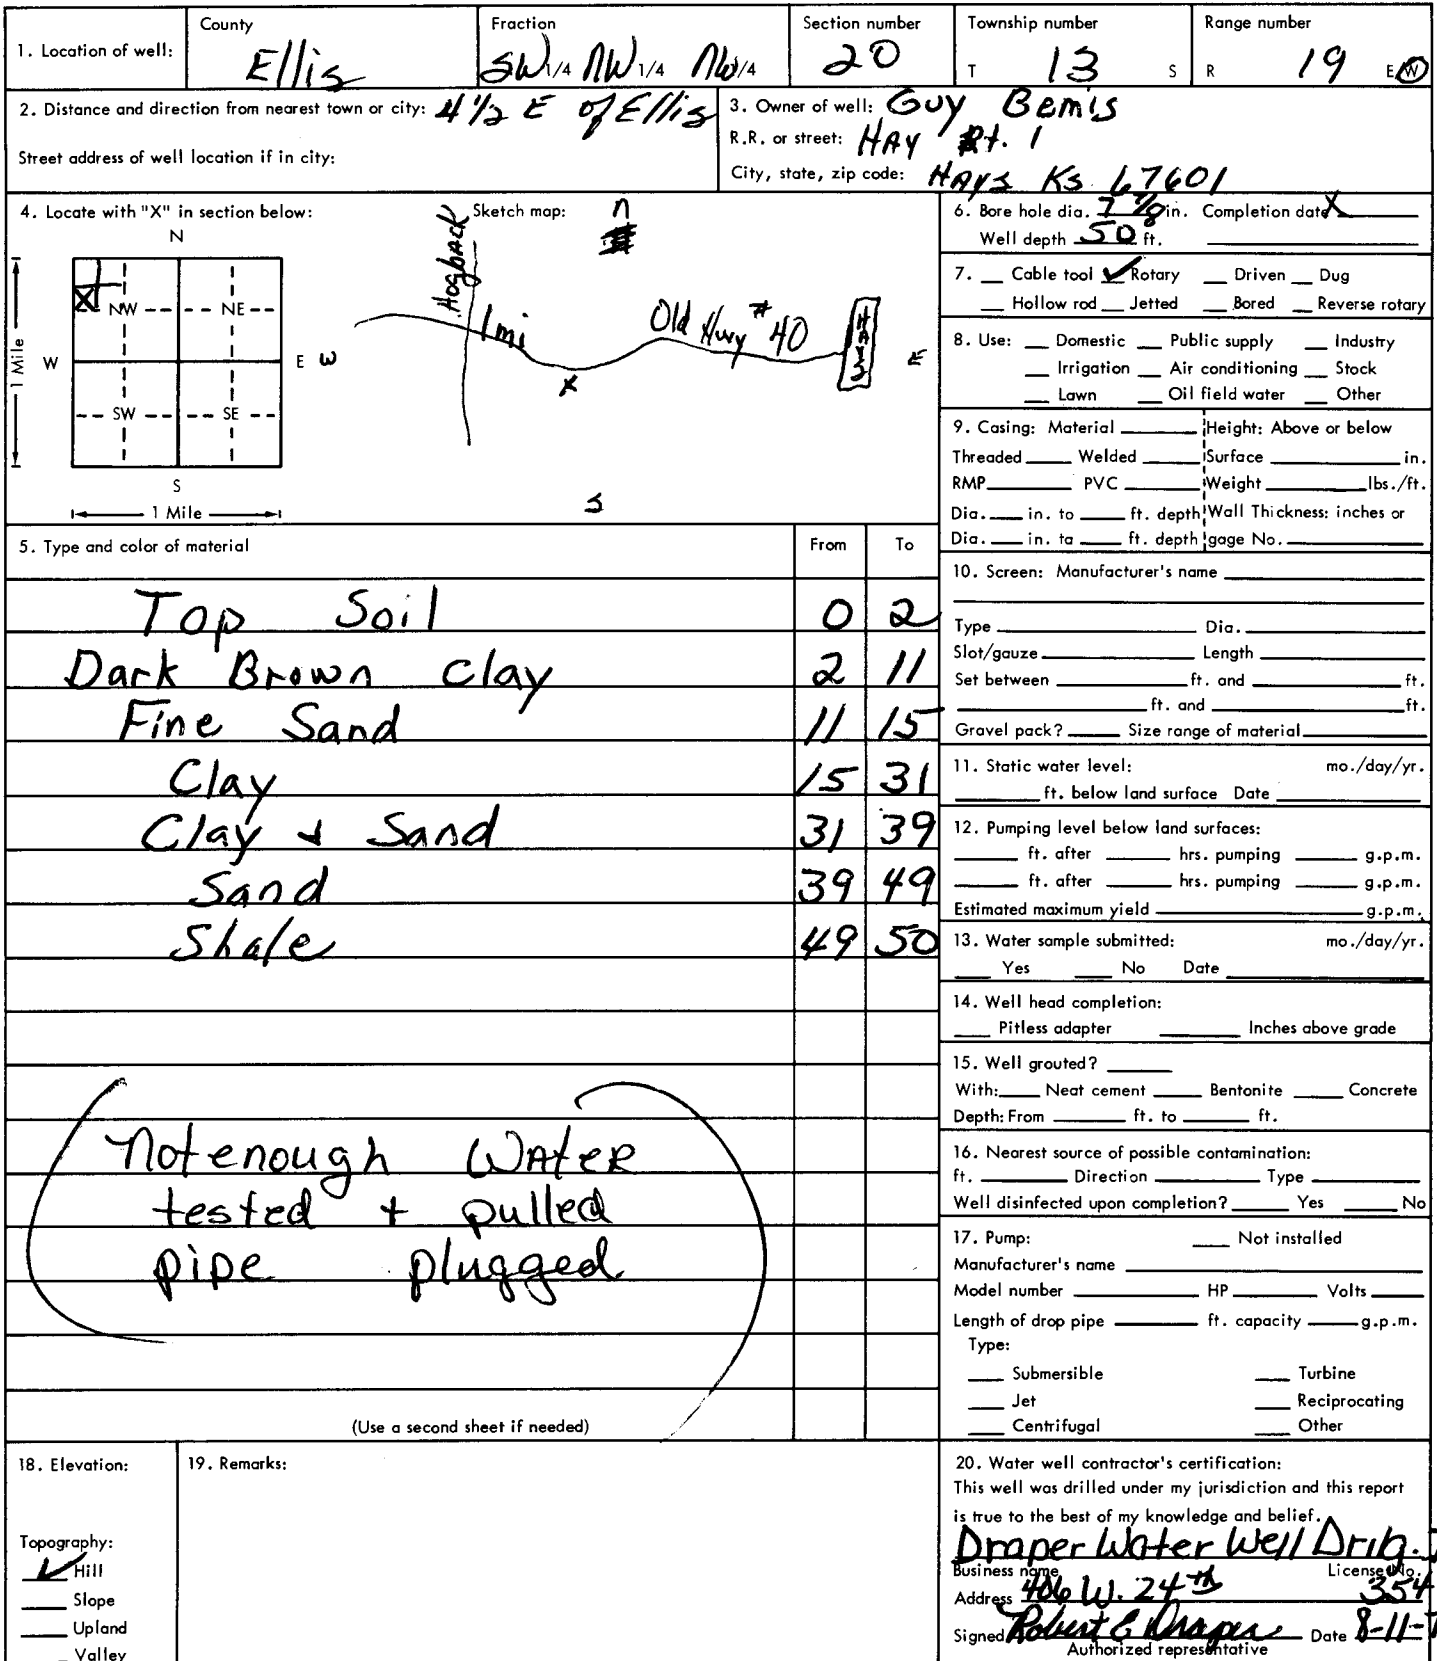 1. Location of well: County Ellis Fraction SW 1/4 NW 1/4 NW 1/4 Section number 20 Township number T 13 S Range number R 19 E/W
2. Distance and direction from nearest town or city: 4 1/2 E of Ellis
Street address of well location if in city:
3. Owner of well: Guy Bemis
R.R. or street: HAY Rt. 1
City, state, zip code: HAYS KS 67601
4. Locate with "X" in section below:
N
NW NE
W E
SW SE
S
1 Mile
1 Mile
Sketch map:
n
Hogback
1 mi
Old Hwy # 40
HAYS
W
E
X
S
6. Bore hole dia. 7 7/8 in. Completion date X
Well depth 50 ft.
7. Cable tool ✓ Rotary Driven Dug
Hollow rod Jetted Bored Reverse rotary
8. Use: Domestic Public supply Industry
Irrigation Air conditioning Stock
Lawn Oil field water Other
9. Casing: Material Height: Above or below
Threaded Welded Surface in.
RMP PVC Weight lbs./ft.
Dia. in. to ft. depth Wall Thickness: inches or
Dia. in. to ft. depth gage No.
5. Type and color of material From To
Top Soil 0 2
Dark Brown Clay 2 11
Fine Sand 11 15
Clay 15 31
Clay + Sand 31 39
Sand 39 49
Shale 49 50
Not enough WATER
tested + pulled
pipe plugged
(Use a second sheet if needed)
10. Screen: Manufacturer's name
Type Dia.
Slot/gauze Length
Set between ft. and ft.
ft. and ft.
Gravel pack? Size range of material
11. Static water level: mo./day/yr.
ft. below land surface Date
12. Pumping level below land surfaces:
ft. after hrs. pumping g.p.m.
ft. after hrs. pumping g.p.m.
Estimated maximum yield g.p.m.
13. Water sample submitted: mo./day/yr.
Yes No Date
14. Well head completion:
Pitless adapter Inches above grade
15. Well grouted?
With: Neat cement Bentonite Concrete
Depth: From ft. to ft.
16. Nearest source of possible contamination:
ft. Direction Type
Well disinfected upon completion? Yes No
17. Pump: Not installed
Manufacturer's name
Model number HP Volts
Length of drop pipe ft. capacity g.p.m.
Type:
Submersible Turbine
Jet Reciprocating
Centrifugal Other
18. Elevation:
Topography:
✓ Hill
Slope
Upland
Valley
19. Remarks:
20. Water well contractor's certification:
This well was drilled under my jurisdiction and this report
is true to the best of my knowledge and belief.
Draper Water Well Drlg.
Business name License No.
Address 406 W. 24th 354
Signed Robert E Draper Date 8-11-
Authorized representative